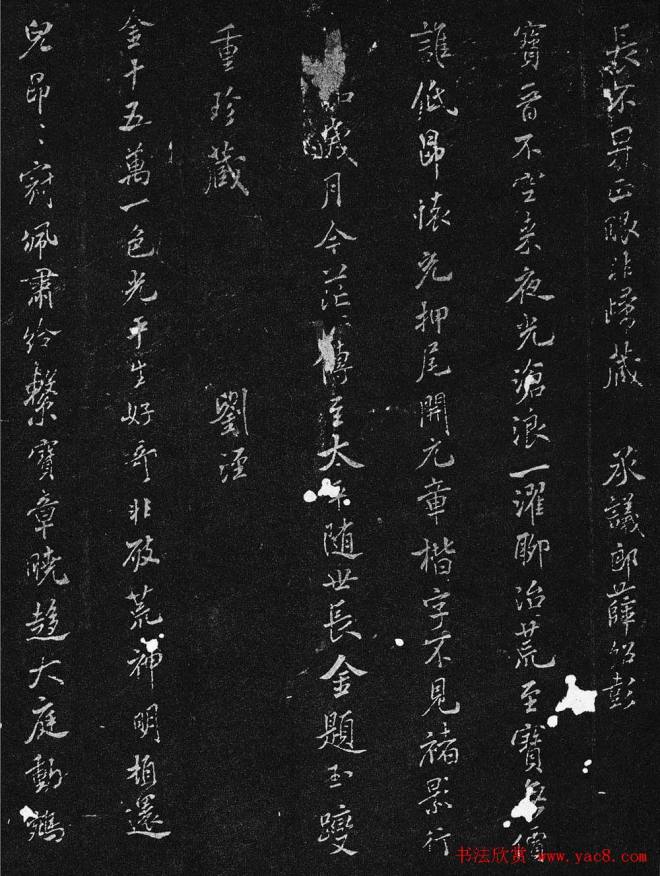 長不昇正眼非曉藏 承議郎薛紹彭
寶晉不空来夜光滄浪一濯聊治荒至寶無價
誰低昂懐充押尾開元章楷字不見褚影行
幾月今茫〻傳至太年随世長金題玉躞
重珍藏 劉涇
金十五萬一色光平生好奇非破荒神明頓還
兒昂〻冠佩肅給繫寶章曉趨大庭動鵷
书法欣赏 www.yac8.com